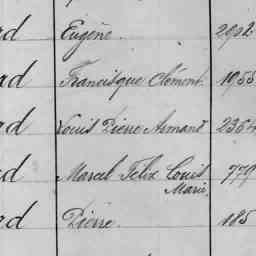 rd Eugène. 2902
rd Francisque Clément. 1955
rd Louis Pierre Armand 2364
rd Marcel Felix Louis 779
Marie.
rd Pierre. 185